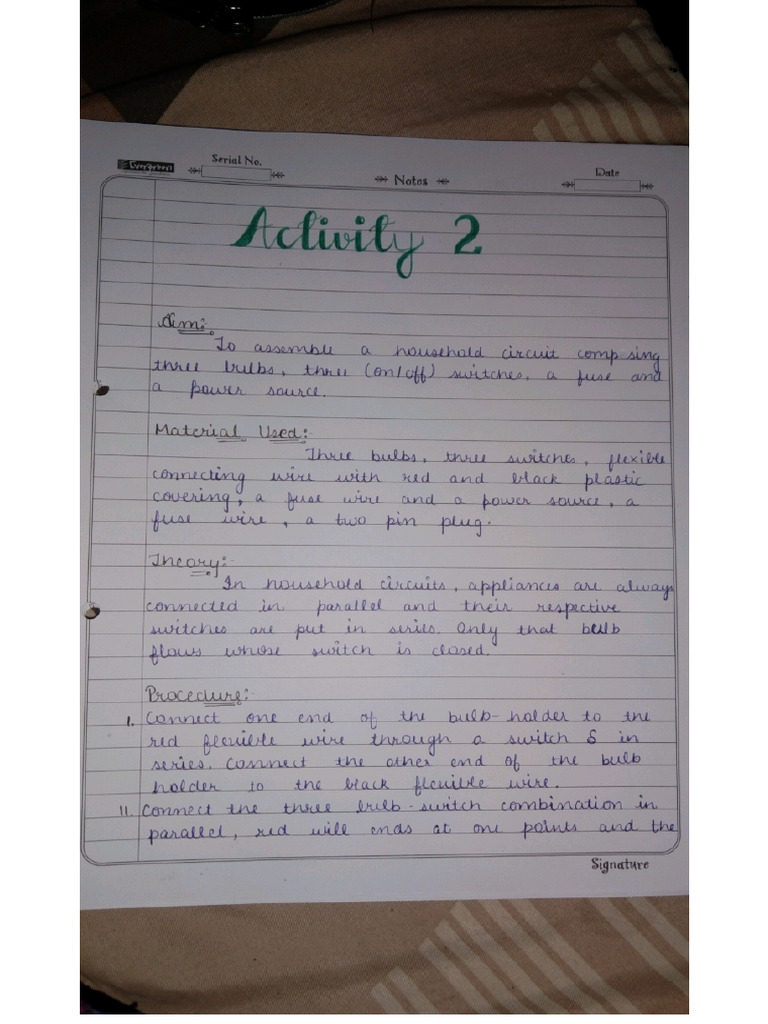 Evergreen
Serial No.
Notes
Date
Activity 2
Aim:
To assemble a household circuit comp sing
three bulbs, three (on/off) switches, a fuse and
a power source.
Material Used:-
Three bulbs, three switches, flexible
connecting wire with red and black plastic
covering, a fuse wire and a power source, a
fuse wire, a two pin plug.
Theory:-
In household circuits, appliances are always
connected in parallel and their respective
switches are put in series. Only that bulb
flows whose switch is closed.
Procedure:-
I. Connect one end of the bulb-holder to the
red flexible wire through a switch S in
series. Connect the other end of the bulb
holder to the black flexible wire.
II. Connect the three bulb-switch combination in
parallel, red will ends at one points and the
Signature